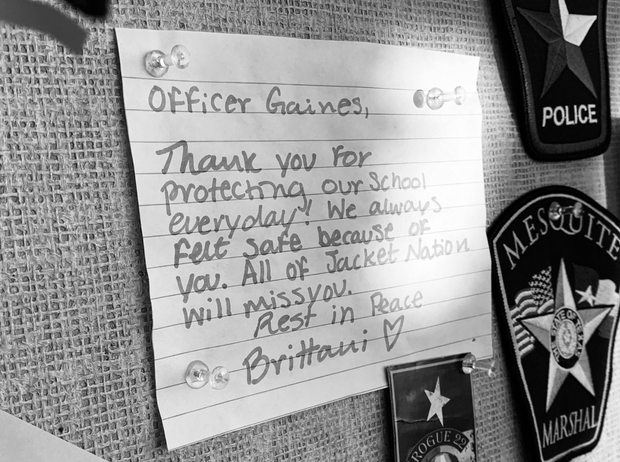 Officer Gaines,
Thank you for
protecting our School
everyday! We always
felt safe because of
you. All of Jacket Nation
will miss you.
Rest in Peace
Brittani ♡
POLICE
MESQUITE
MARSHAL
ROGUE 22